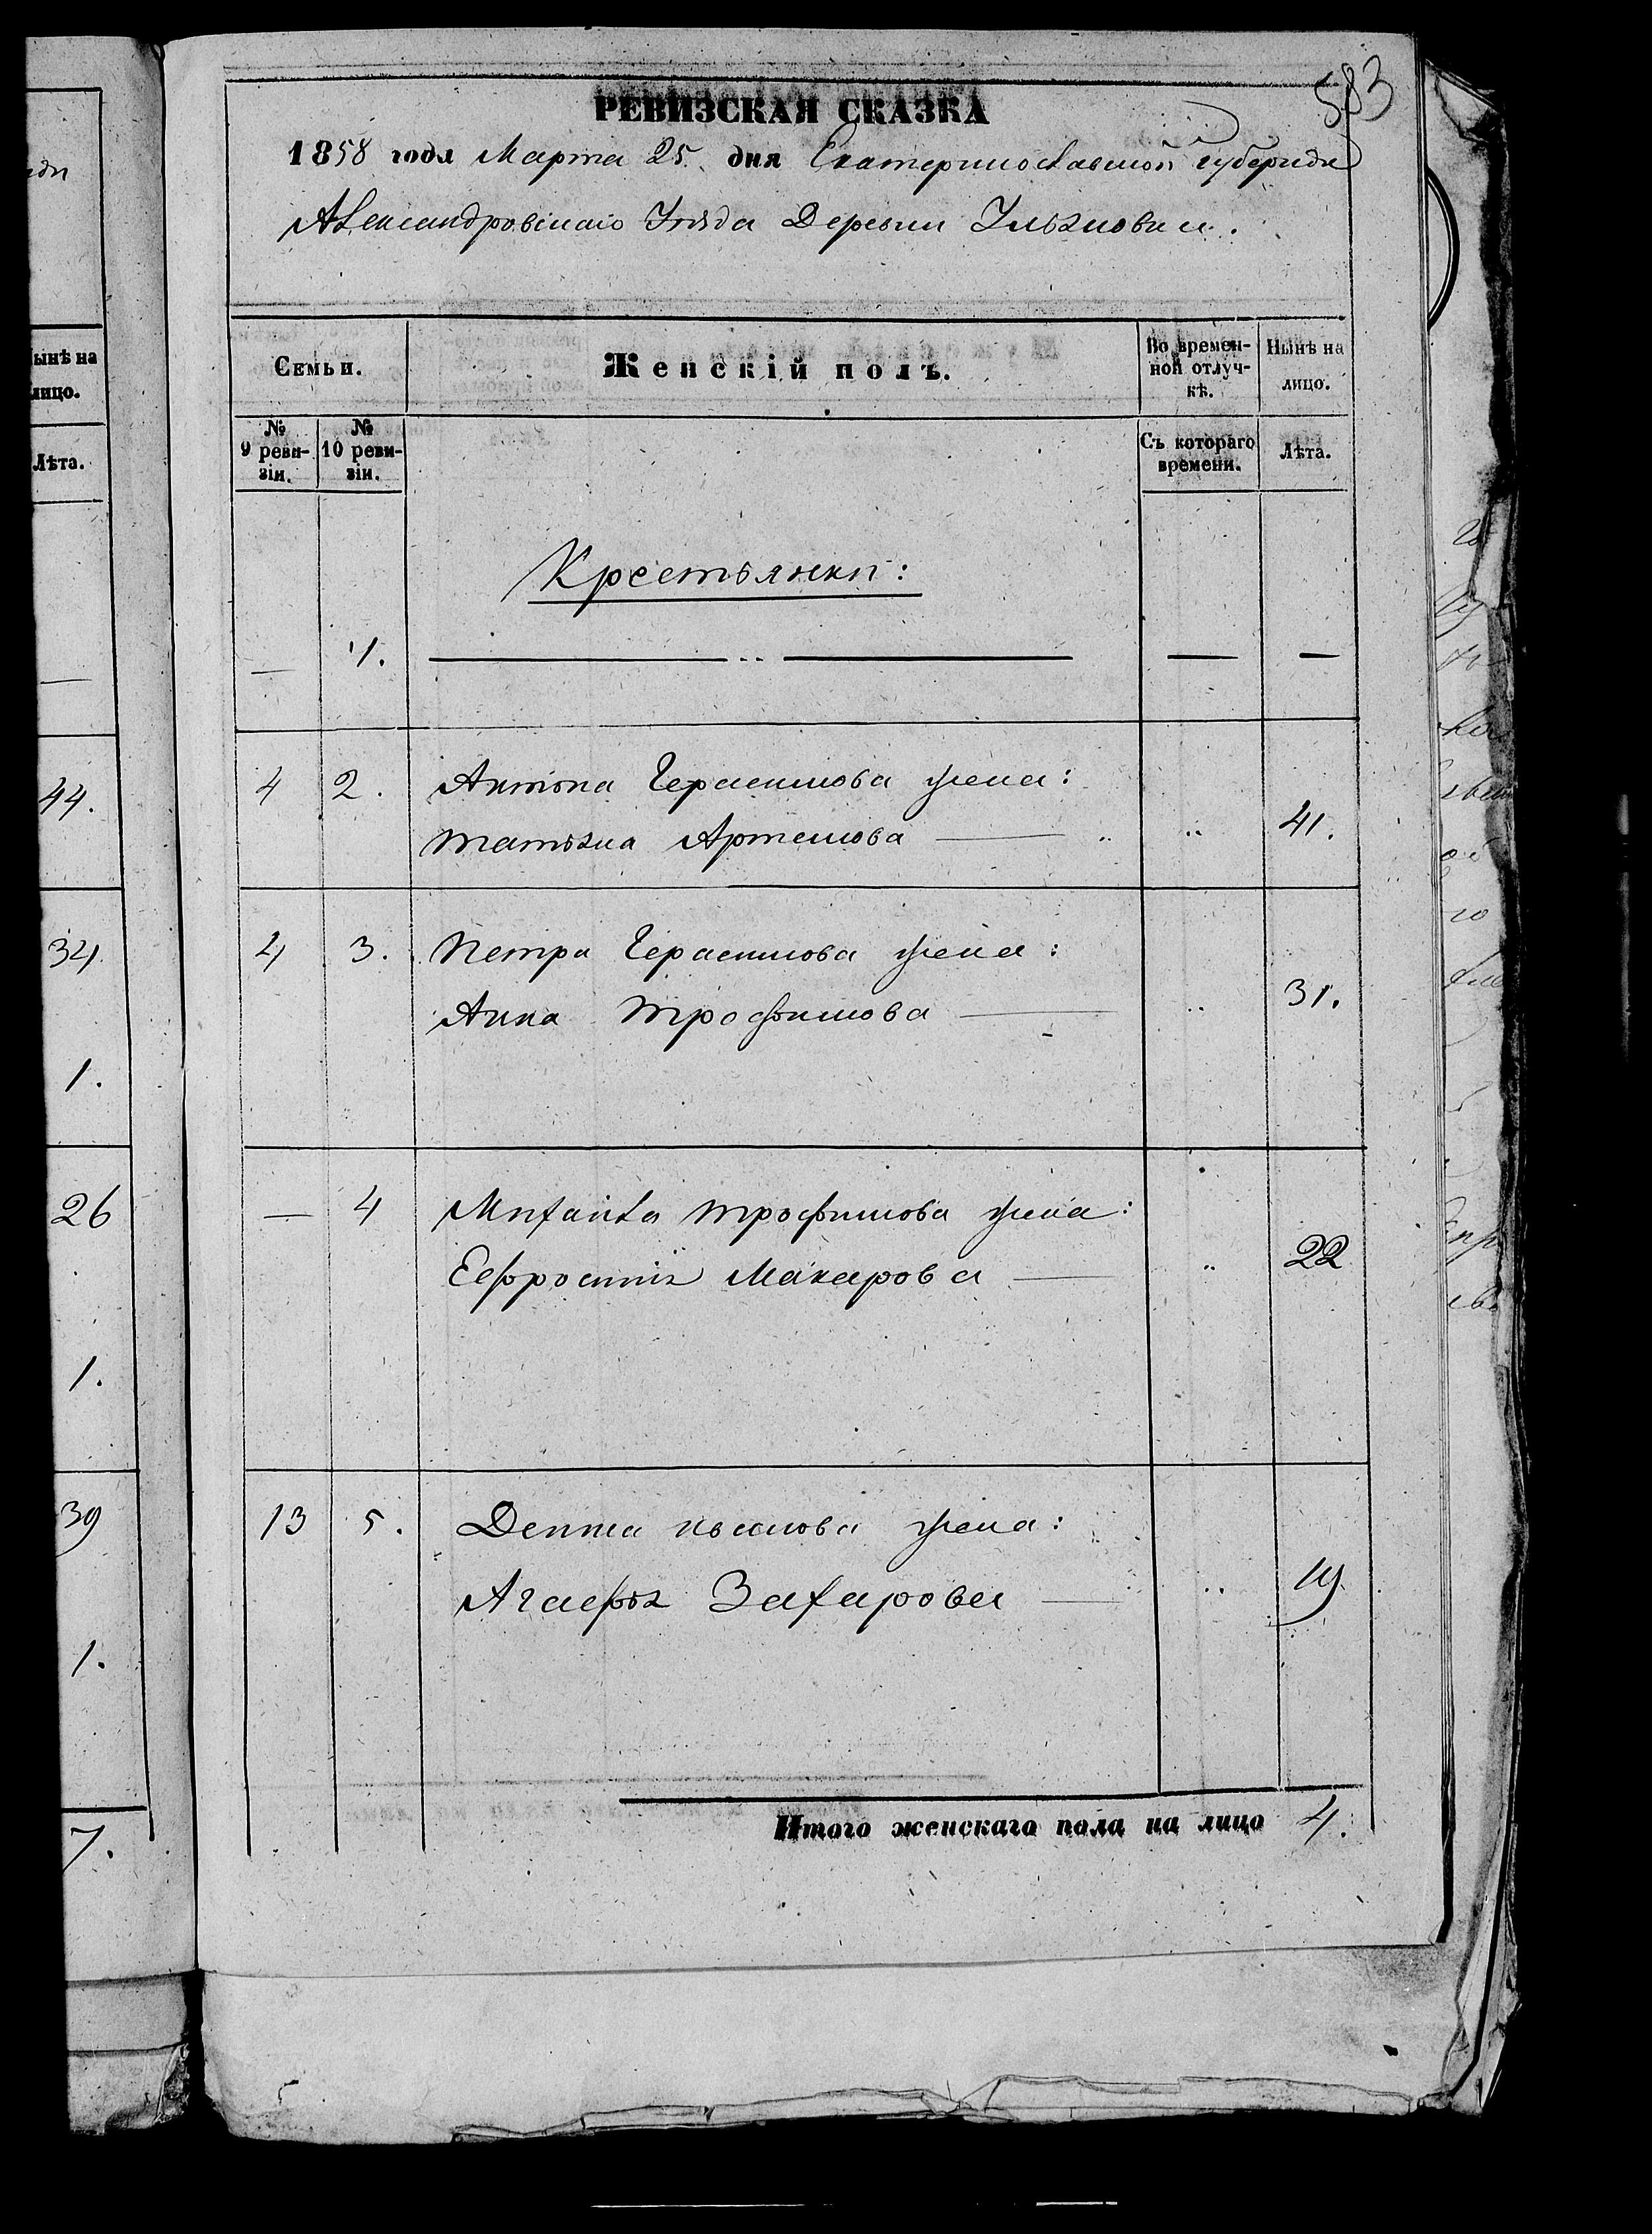 583
РЕВИЗСКАЯ СКАЗКА
1858 года Марта 25. дня Екатеринославской Губернии
Александровскаго Уѣзда Деревни Ульяновки.
Семьи.
Женскій полъ.
Во времен-
ной отлуч-
кѣ.
Нынѣ на
лицо.
№
9 реви-
зіи.
№
10 реви-
зіи.
Съ котораго
времени.
Лѣта.
Крестьянки:
— 1. — —
4 2. Антона Герасимова жена:
Татьяна Артемова — 41.
4 3. Петра Герасимова жена:
Анна Трофимова — 31.
— 4 Михаила Трофимова жена:
Ефросинія Макарова — 22
13 5. Демида Иванова жена:
Агафья Захарова — 19
Итого женскаго пола на лицо 4.
ынѣ на
лицо.
Лѣта.
44.
34.
1.
26
1.
39
1.
7.